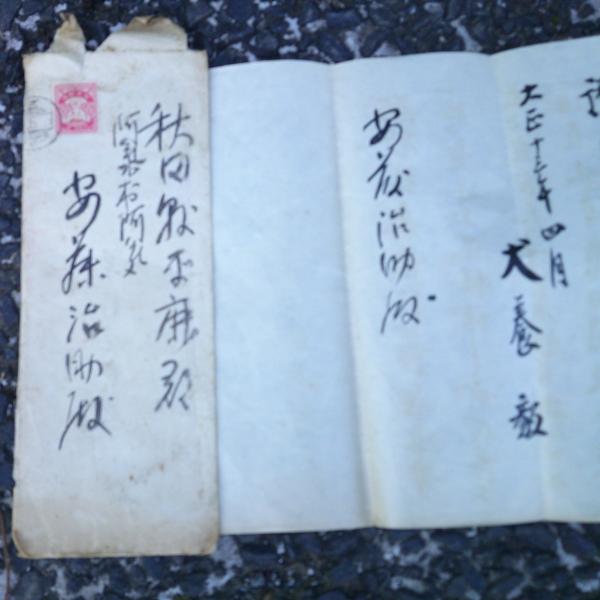 秋田縣平鹿郡
阿氣村阿氣
安藤治助殿
大正十三年四月
犬養毅
安藤治助殿